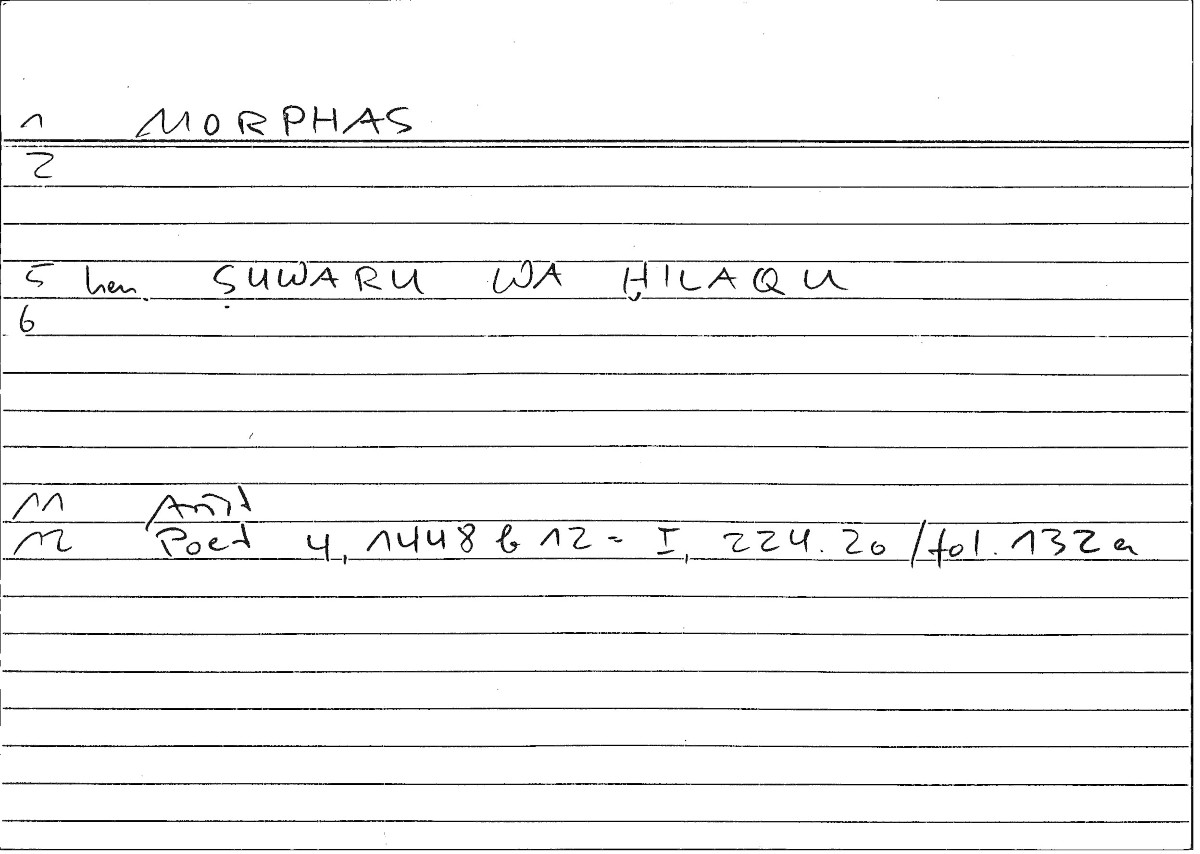 1 MORPHAS
2
5 hen. ṢUWARU WA ḪILAQU
6
11 Arist
12 Poet 4, 1448 b 12 = I, 224.20 / fol. 132 a